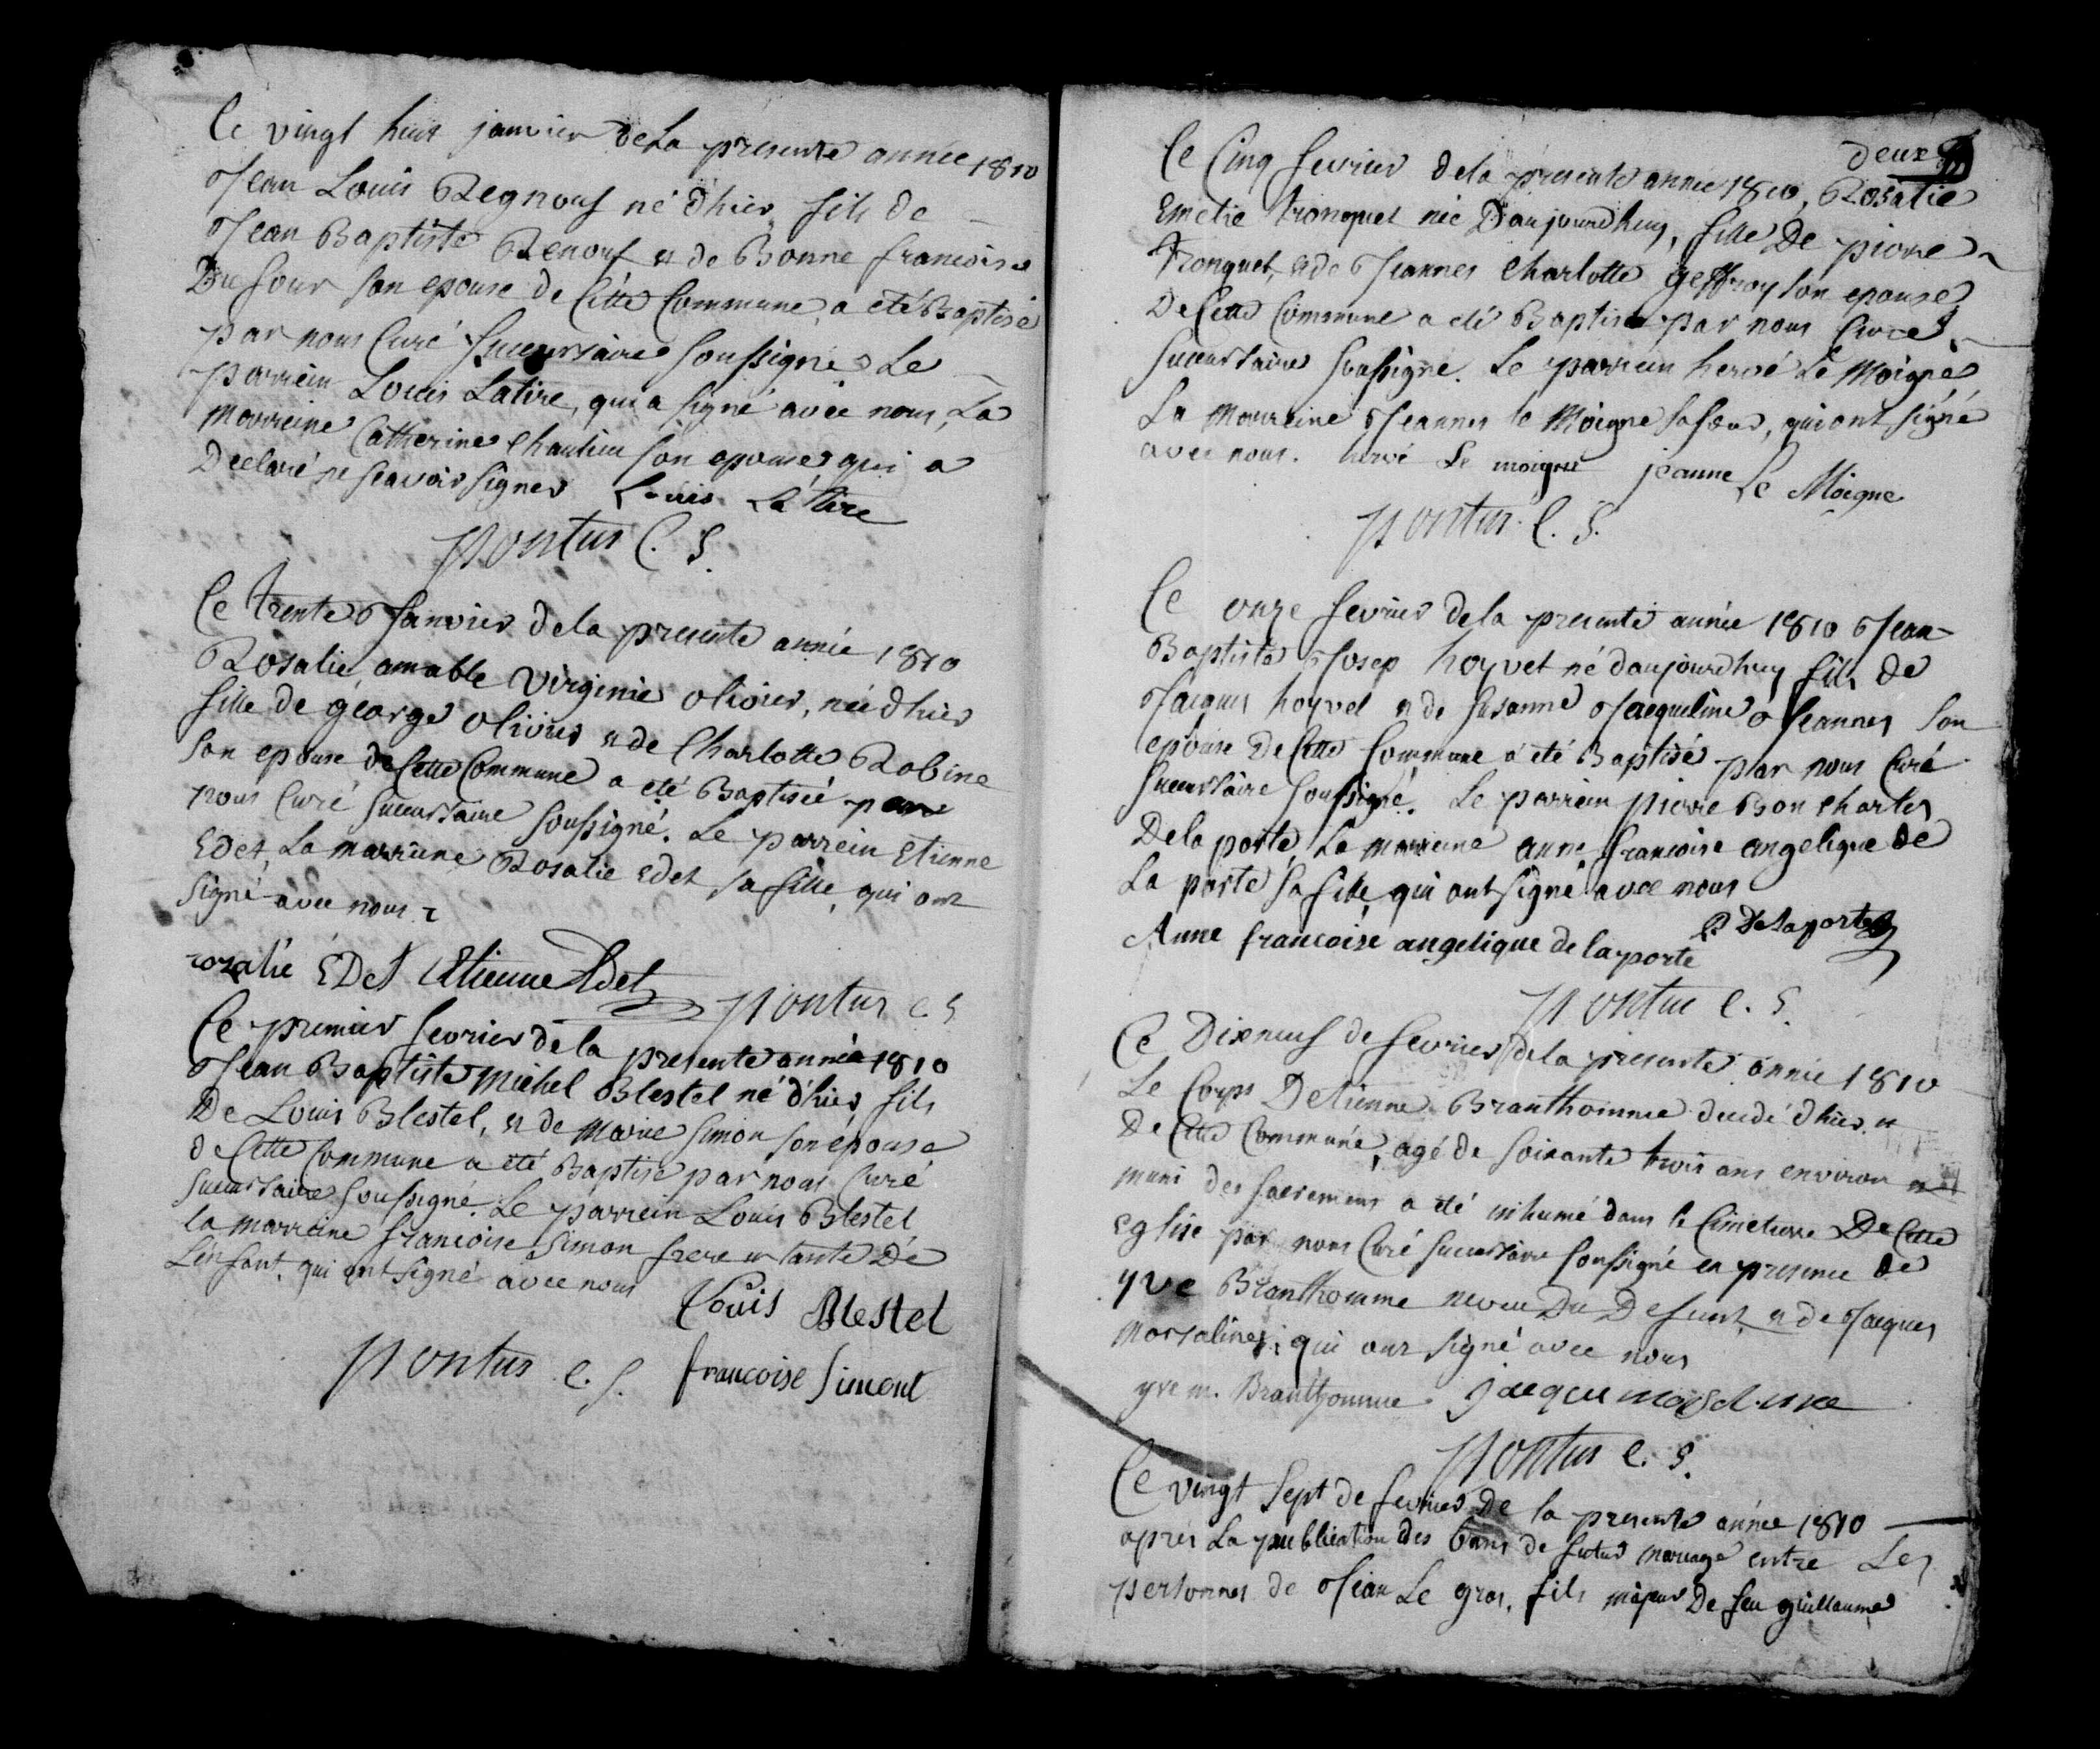 Ce vingt huit janvier de la presente année 1810
Jean Louis Regnouf né d'hier fils de
Jean Baptiste Renouf et de Bonne francoise
Du four son epouse de Cette Commune a eté Baptisé
par nous Curé succursaire soussigné Le
parrein Louis Latire, qui a signé avec nous, La
marreine Catherine Chaulieu son epouse, qui a
Declaré ne scavoir signer Louis La tire
Pontus C. S.
Ce trente Janvier de la presente année 1810
Rosalie amable Virginie olivier, née d'hier
fille de george olivier et de Charlotte Robine
son epouse de Cette Commune a eté Baptisée par
nous Curé succursaire soussigné. Le parrein Etienne
Edet, La marreine Rosalie Edet sa fille, qui ont
signé avec nous
rozalie EDet Etienne Edet
Pontus C S
Ce premier fevrier de la presente année 1810
Jean Baptiste Michel Blestel né d'hier fils
De Louis Blestel, et de Marie simon son épouse
de Cette Commune a eté Baptisé par nous Curé
succursaire soussigné. Le parrein Louis Blestel
la marreine francoise simon frere et tante De
L'enfant, qui ont signé avec nous
Louis Blestel
Pontus C. S. francoise Simont
deux
Ce Cinq fevrier de la presente année 1810, Rosalie
Emelie tronquet née D'aujourdhuy, fille De pierre
Tronquet, et de Jeannes Charlotte geffroy son epouse
De Cette Commune a eté Baptisé par nous Curé
succursaire soussigné. Le parrein hervé Le Moigne
La Marreine Jeannes le Moigne sa soeur, qui ont signé
avec nous. hervé Le moigne jeanne Le Moigne
Pontus C. S.
Ce onze fevrier de la presente année 1810 Jean
Baptiste Josep hoyvet né daujourdhuy fils de
Jacques hoyvet et de susanne Jacqueline Jeannes son
epouse De Cette Commune a été Baptisé par nous Curé
succursaire soussigné. Le parrein pierre Bon Charles
De la porte, La marreine anne francoise angelique de
La porte sa fille, qui ont signé avec nous
P. Delaporte
Anne francoise angelique de laporte
Pontus C. S.
Ce Dixneuf de fevrier de la presente année 1810
Le Corps Detienne Branthomme decedé d'hier et
De Cette Commune, agé de soixante trois ans environ et
muni des sacremens a été inhumé dans le Cimetiere De Cette
Eglise par nous Curé succursaire soussigné en presence de
yve Branthomme neveu Du Defunt, et de Jacques
Morsalines, qui ont signé avec nous
yve m. Branthomme jacque
Pontus C. S.
Ce vingt sept de fevrier De la presente année 1810
aprés La publication des bans de futur mariage entre Les
personnes de Jean Le gros, fils majeur De feu guillaume